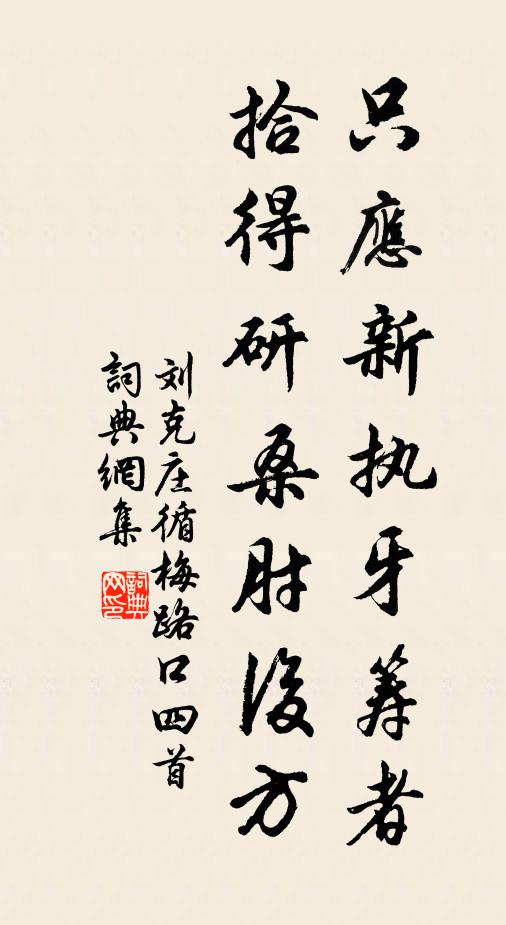 只應新执牙筹者
拾得研桑肘後方
刘克庄循梅路口四首
詞典網集
詞典網印